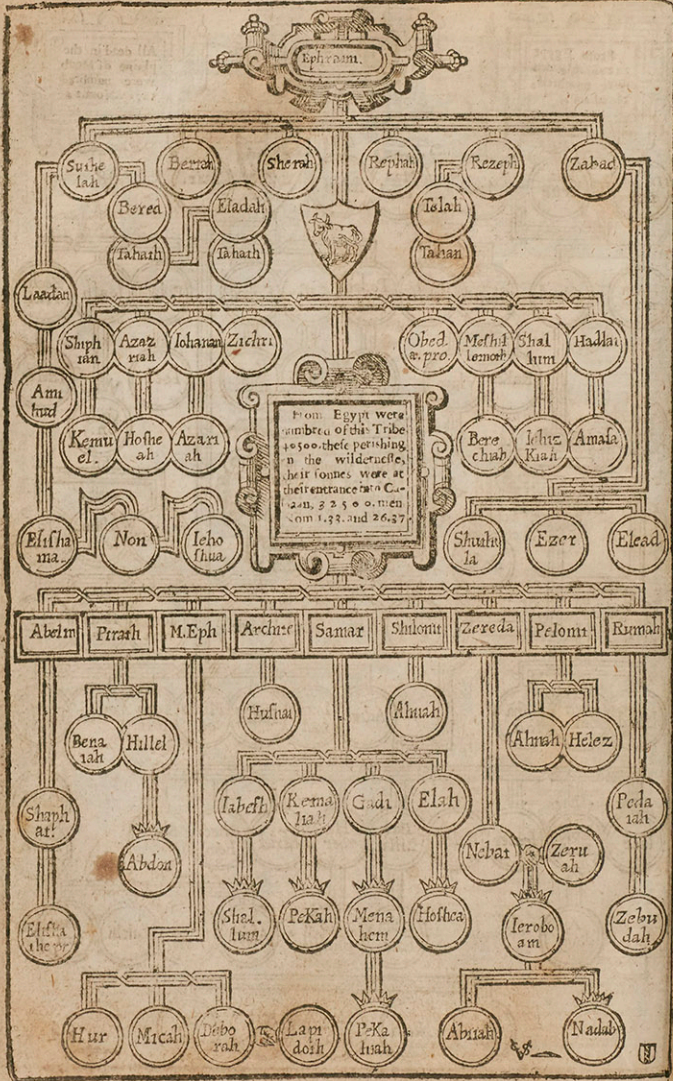 Ephraim.
Suthe
lah
Beriah
Sherah
Rephah
Rezeph
Zabad
Bered
Eladah
Telah
Tahath
Tahath
Tahan
Laadan
Shiph
tan
Azaz
riah
Iohanan
Zichri
Obed.
pro.
Meshil
lemoth
Shal
lum
Hadlai
Ami
hud
Kemu
el.
Hoshe
ah
Azari
ah
Bere
chiah
Iehiz
Kiah
Amasa
From Egypt were
numbred of this Tribe
40500. these perishing
in the wildernesse,
their sonnes were at
their entrance into Ca-
naan, 32500. men
1.33. and 26.37.
Elisha
ma.
Non
Ieho
shua
Shuthe
la
Ezer
Elead
Abelm
Pirath
M.Eph
Archite
Samar
Shilonit
Zereda
Pelonit
Rumah
Hushai
Ahiah
Bena
iah
Hillel
Ahiah
Helez
Shaph
at
Iabesh
Rema
liah
Gadi
Elah
Peda
iah
Abdon
Nebat
Zeru
ah
Elisha
the pr
Shal.
lum
PeKah
Mena
hem
Hoshea
Ierobo
am
Zebu
dah
Hur
Micah
Debo
rah
Lapi
doth
PeKa
hiah
Abiiah
Nadab